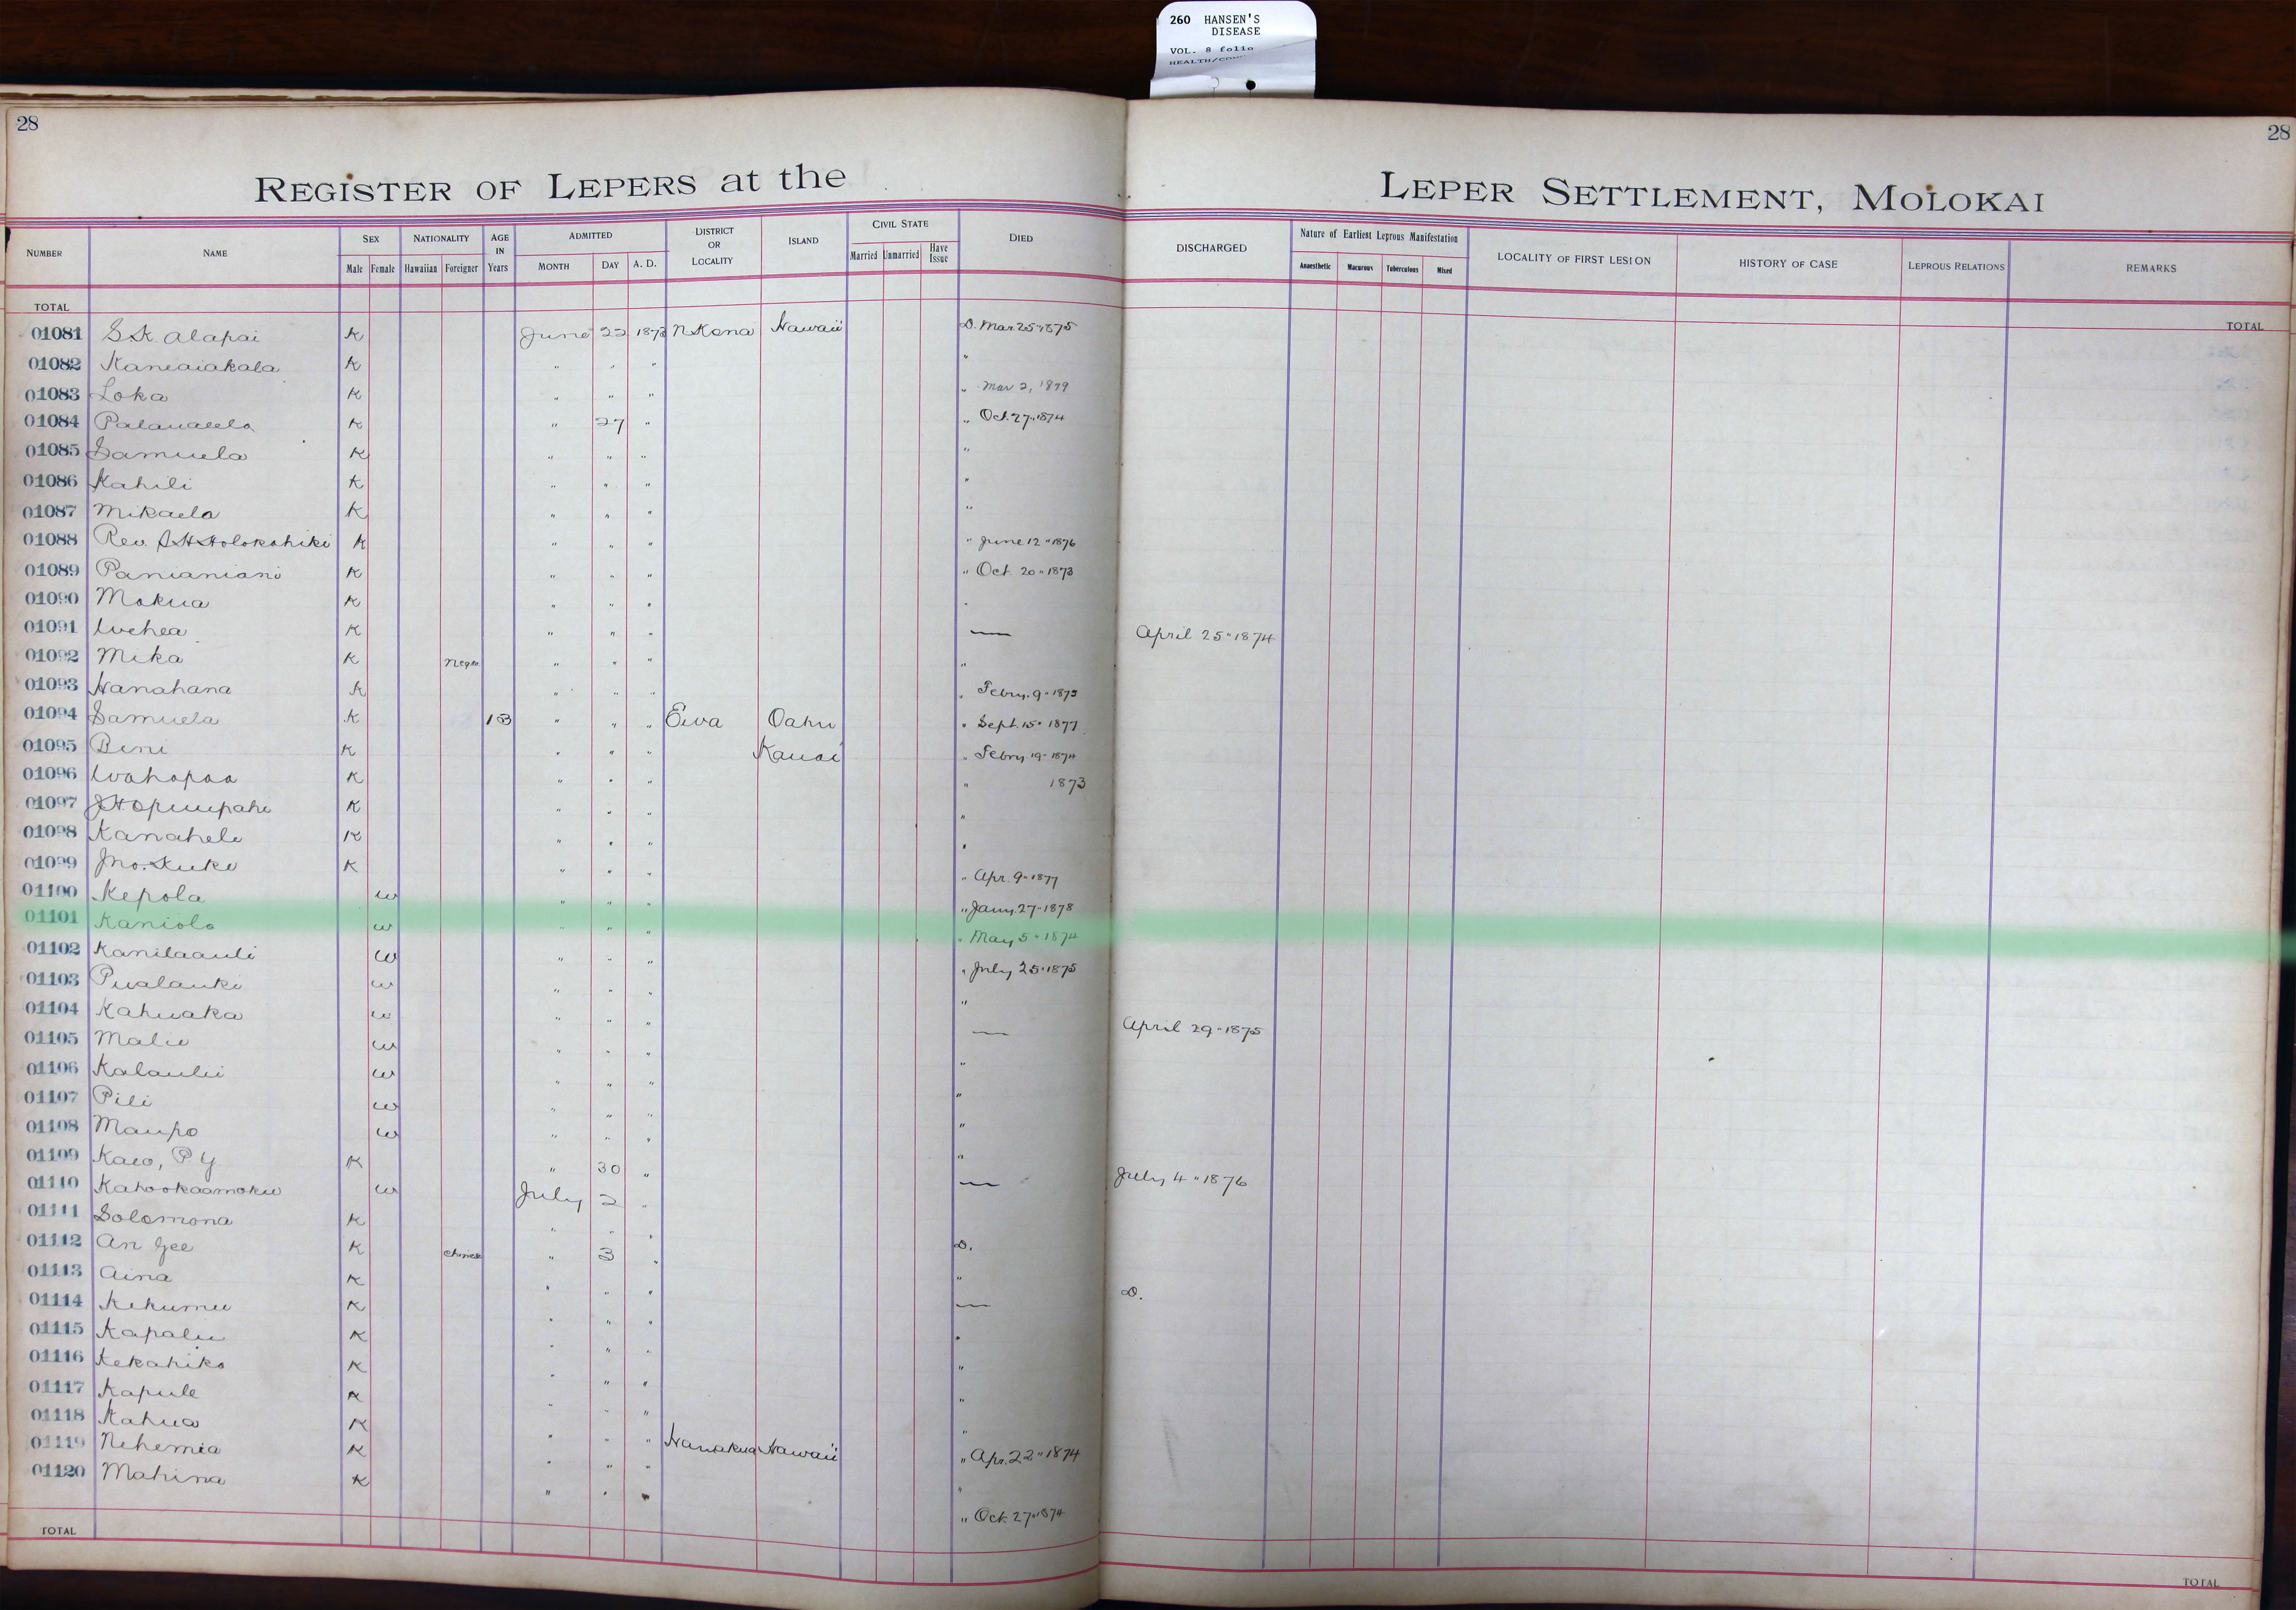 260 HANSEN'S
DISEASE
VOL. 8 folio
28
28
REGISTER OF LEPERS at the LEPER SETTLEMENT, MOLOKAI
NUMBER NAME SEX NATIONALITY AGE IN Years ADMITTED DISTRICT OR LOCALITY ISLAND CIVIL STATE DIED DISCHARGED Nature of Earliest Leprous Manifestation LOCALITY OF FIRST LESION HISTORY OF CASE LEPROUS RELATIONS REMARKS
Male Female Hawaiian Foreigner MONTH DAY A. D. Married Unmarried Have Issue Anaesthetic Macurous Tuberculous Mixed
TOTAL TOTAL
01081 S.K. Alapai K June 22 1873 N Kona Hawaii D. Mar. 25 " 1875
01082 Kaneaiakala K " " " "
01083 Loka K " " " " Mar 2, 1879
01084 K " 27 " " Oct. 27 " 1874
01085 Samuela K " " " "
01086 Kahili K " " " "
01087 Mikaela K " " " "
01088 Rev. Holokahiki K " " " " June 12 " 1876
01089 Panianiani K " " " " Oct. 20 " 1873
01090 Mokua K " " " "
01091 K " " " — April 25 " 1874
01092 Mika K Negro " " " "
01093 Hanahana K " " " " Febry. 9 "
01094 Samuela K 13 " " " Ewa Oahu " Sept. 15 " 1877
01095 Beni K " " " Kauai " Febry 19 " 1874
01096 Wahapaa K " " " " 1873
01097 K " " " "
01098 Kanahele K " " " "
01099 Jno. K " " " " Apr. 9 " 1877
01100 Kepola w " " " " Jany. 27 " 1878
01101 Kaniolo w " " " " May 5 " 1874
01102 Kanilaauli w " " " " July 25 " 1875
01103 Pualauki w " " " "
01104 Kahuaka w " " " — April 29 " 1875
01105 Malie w " " " "
01106 Kalaulii w " " " "
01107 Pili w " " " "
01108 Maupo w " " " "
01109 Kaeo, P Y K " 30 " — July 4 " 1876
01110 Kahookaamoku w July 2 "
01111 Solomona K " " " D.
01112 An Gee K Chinese " 3 " "
01113 Aina K " " " — D.
01114 Kekumu K " " " "
01115 Kapalu K " " " "
01116 Kekahiko K " " " "
01117 Kapule K " " " "
01118 Kahua K " " " Hamakua Hawaii " Apr. 22 " 1874
01119 Nehemia K " " " "
01120 Mahina K " " " " Oct. 27 " 1874
TOTAL TOTAL